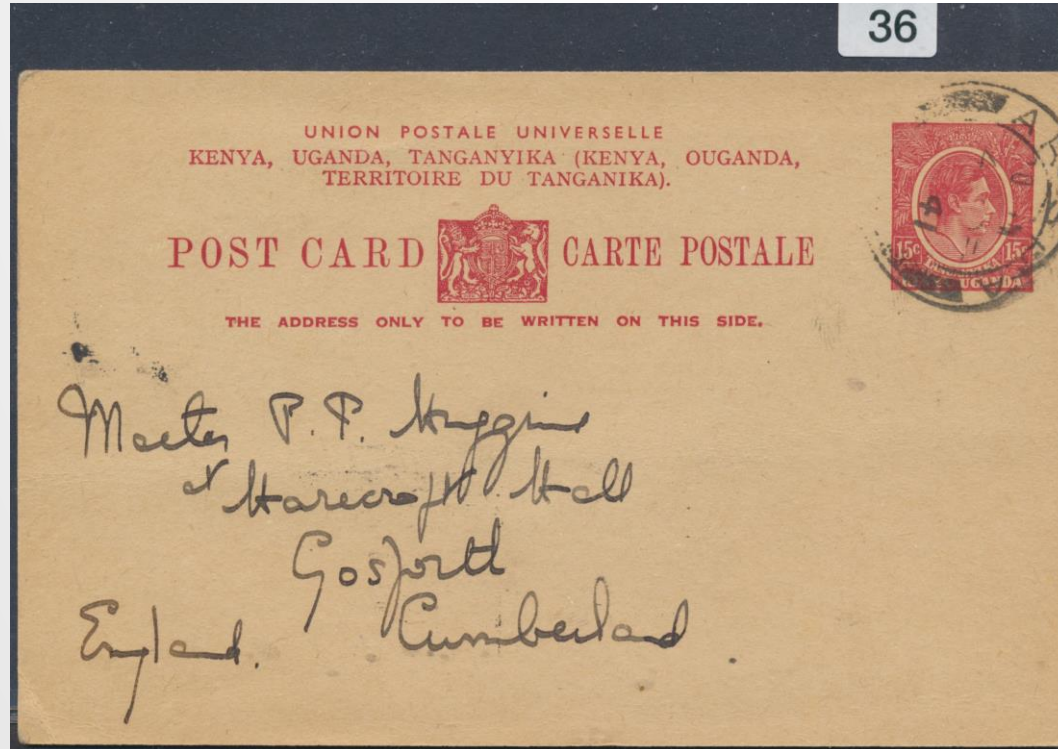 36
UNION POSTALE UNIVERSELLE
KENYA, UGANDA, TANGANYIKA (KENYA, OUGANDA,
TERRITOIRE DU TANGANIKA).
POST CARD CARTE POSTALE
THE ADDRESS ONLY TO BE WRITTEN ON THIS SIDE.
15c 15c
UGANDA
41
Master P. P. Huggins
at Harecroft Hall
Gosforth
Cumberland
England.